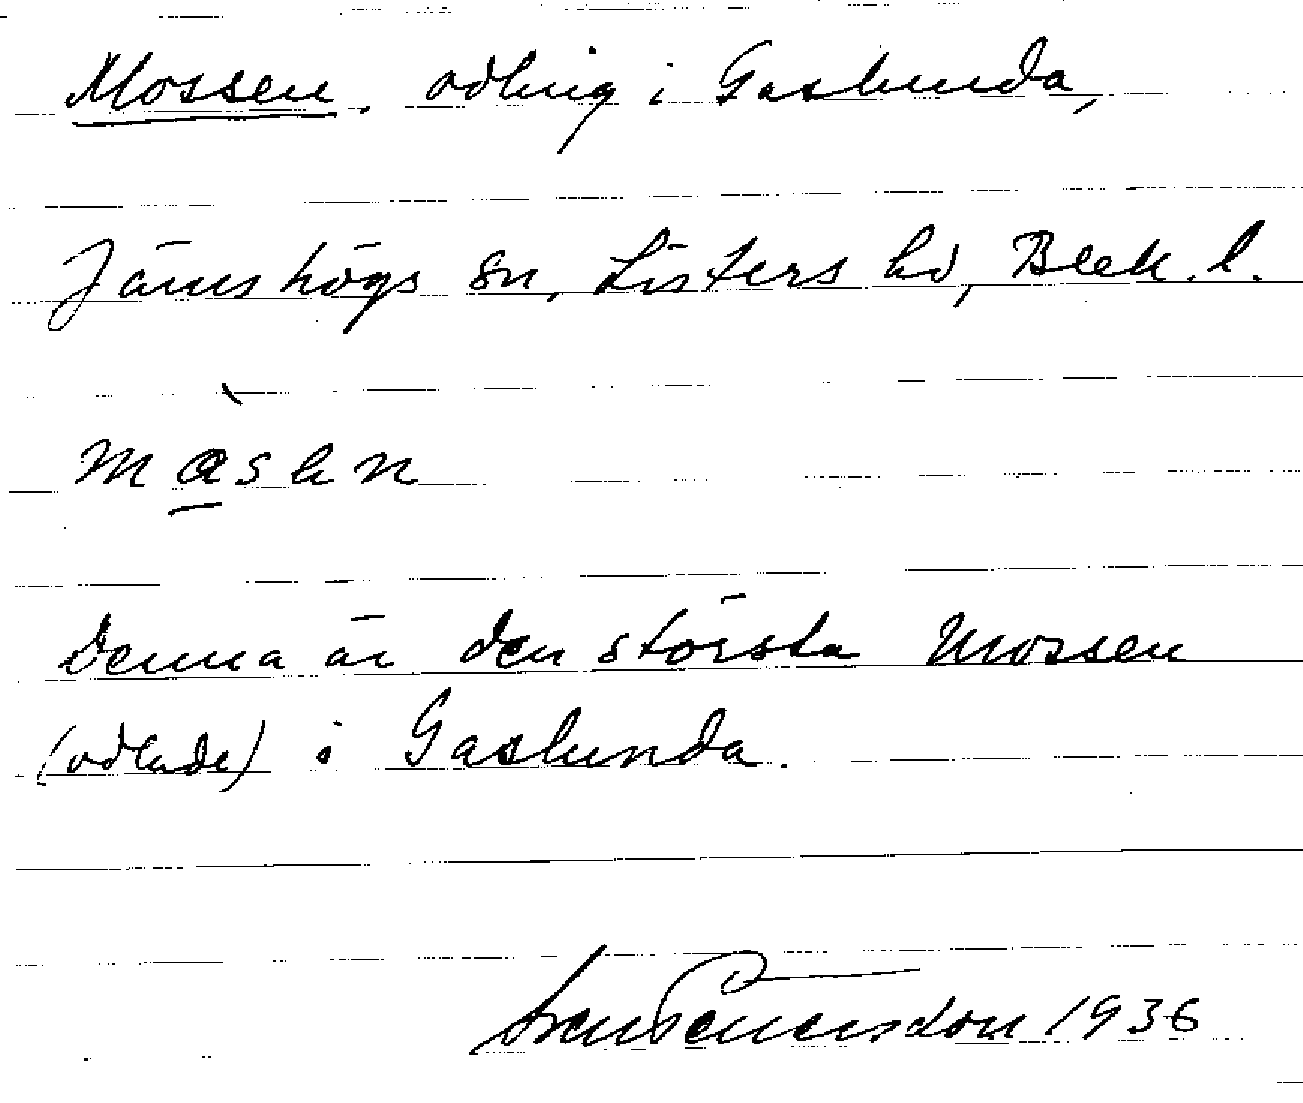 Mossen, odling i Gaslunda,
Jämshögs sn, Listers hd, Blek. l.
Denna är den största Mossen
(odlade) i Gaslunda.
Sven 1936